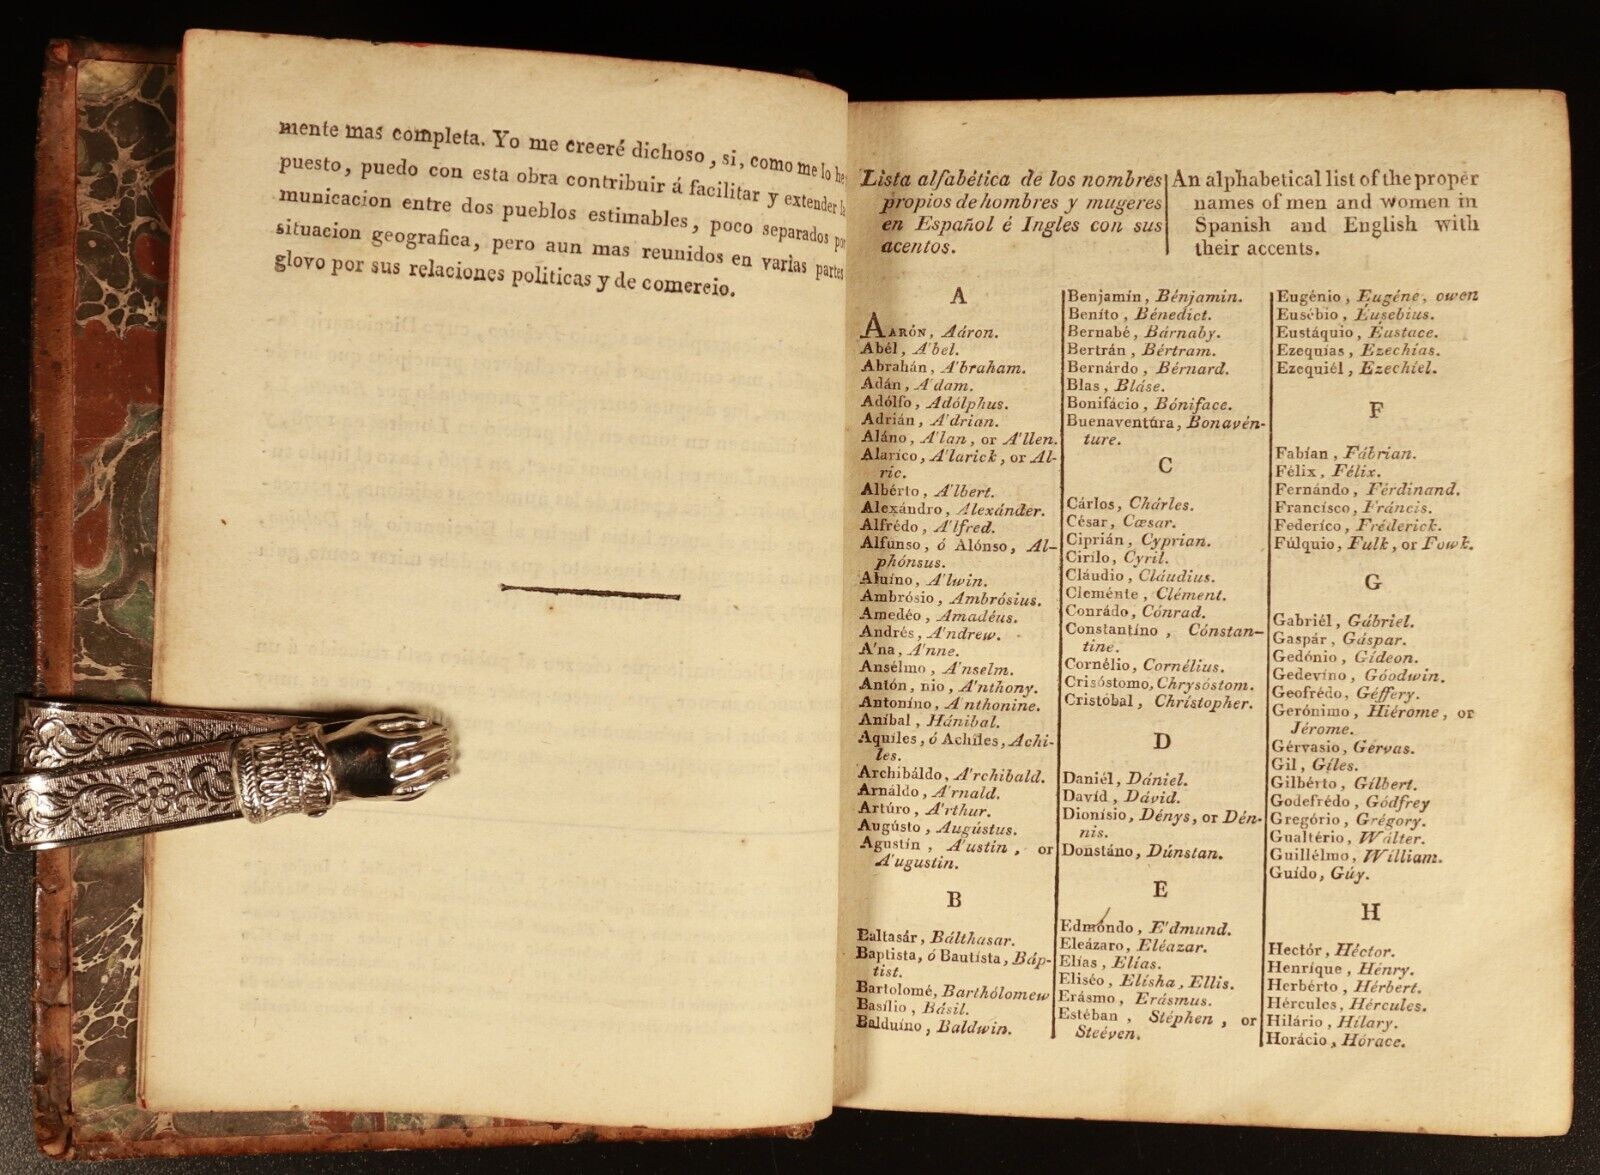 mente mas completa. Yo me creeré dichoso, si, como me lo he
puesto, puedo con esta obra contribuir á facilitar y extender la
municacion entre dos pueblos estimables, poco separados por
situacion geografica, pero aun mas reunidos en varias partes
glovo por sus relaciones politicas y de comercio.
Lista alfabética de los nombres
propios de hombres y mugeres
en Español é Ingles con sus
acentos.
An alphabetical list of the proper
names of men and women in
Spanish and English with
their accents.
A
AARÓN, Aáron.
Abél, A'bel.
Abrahán, A'braham.
Adán, A'dam.
Adólfo, Adólphus.
Adrián, A'drian.
Aláno, A'lan, or A'llen.
Alaríco, A'larick, or Al-
ric.
Albérto, A'lbert.
Alexándro, Alexánder.
Alfrédo, A'lfred.
Alfonso, ó Alónso, Al-
phónsus.
Aluíno, A'lwin.
Ambrósio, Ambrósius.
Amedéo, Amadéus.
Andrés, A'ndrew.
A'na, A'nne.
Ansélmo, A'nselm.
Antón, nio, A'nthony.
Antoníno, A'nthonine.
Aníbal, Hánibal.
Aquíles, ó Achíles, Achi-
les.
Archibáldo, A'rchibald.
Arnáldo, A'rnald.
Artúro, A'rthur.
Augústo, Augústus.
Agustín, A'ustin, or
A'ugustin.
B
Baltasár, Bálthasar.
Baptista, ó Bautísta, Báp-
tist.
Bartolomé, Barthólomew
Basílio, Básil.
Balduíno, Baldwin.
Benjamín, Bénjamin.
Beníto, Bénedict.
Bernabé, Bárnaby.
Bertrán, Bértram.
Bernárdo, Bérnard.
Blas, Bláse.
Bonifácio, Bóniface.
Buenaventúra, Bonavén-
ture.
C
Cárlos, Chárles.
César, Cæsar.
Ciprián, Cyprian.
Cirílo, Cyril.
Cláudio, Cláudius.
Cleménte, Clément.
Conrádo, Cónrad.
Constantíno, Cónstan-
tine.
Cornélio, Cornélius.
Crisóstomo, Chrysóstom.
Cristóbal, Chrístopher.
D
Daniél, Dániel.
Davíd, Dávid.
Dionísio, Dénys, or Dén-
nis.
Donstáno, Dúnstan.
E
Edmóndo, E'dmund.
Eleázaro, Eléazar.
Elías, Elías.
Eliséo, Elísha, Ellis.
Erásmo, Erásmus.
Estéban, Stéphen, or
Steéven.
Eugénio, Eugéne, owen
Eusébio, Eusebius.
Eustáquio, Eustace.
Ezequías, Ezechías.
Ezequiél, Ezechiel.
F
Fabían, Fábrian.
Félix, Félix.
Fernándo, Férdinand.
Francísco, Fráncis.
Federíco, Fréderick.
Fúlquio, Fulk, or Fowk.
G
Gabriél, Gábriel.
Gaspár, Gáspar.
Gedónio, Gídeon.
Gedevíno, Góodwin.
Geofrédo, Géffery.
Gerónimo, Hiérome, or
Jérome.
Gérvasio, Gérvas.
Gil, Gíles.
Gilbérto, Gílbert.
Godefrédo, Gódfrey
Gregório, Grégory.
Gualtério, Wálter.
Guillélmo, William.
Guído, Gúy.
H
Hectór, Héctor.
Henríque, Hénry.
Herbérto, Hérbert.
Hércules, Hércules.
Hilário, Hílary.
Horácio, Hórace.